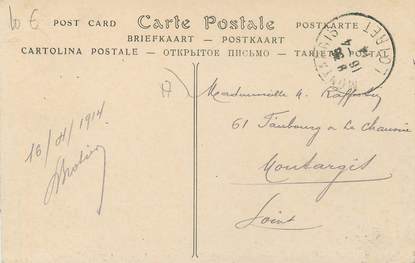 10 €
POST CARD Carte Postale POSTKARTE
BRIEFKAART — POSTKAART
CARTOLINA POSTALE — ОТКРЫТОЕ ПИСЬМО — TARJETA POSTAL
LOIRET
Mademoiselle
61 Faubourg de la Chaussée
Montargis
Loiret
16/8/1914